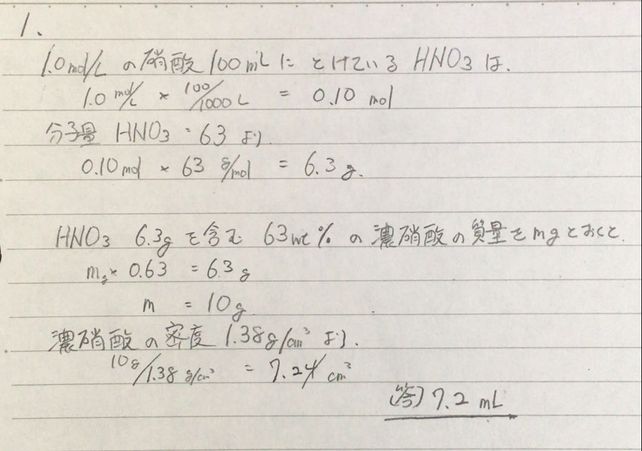 1.
1.0 mol/L の硝酸 100 mL に とけている HNO3 は.
1.0 mol/L × 100/1000 L = 0.10 mol
分子量 HNO3 = 63 より.
0.10 mol × 63 g/mol = 6.3 g.
HNO3 6.3g を含む 63 wt% の濃硝酸の質量を m g とおくと.
m g × 0.63 = 6.3 g
m = 10 g.
濃硝酸の密度 1.38 g/cm³ より.
10 g/1.38 g/cm³ = 7.24 cm³
(答) 7.2 mL